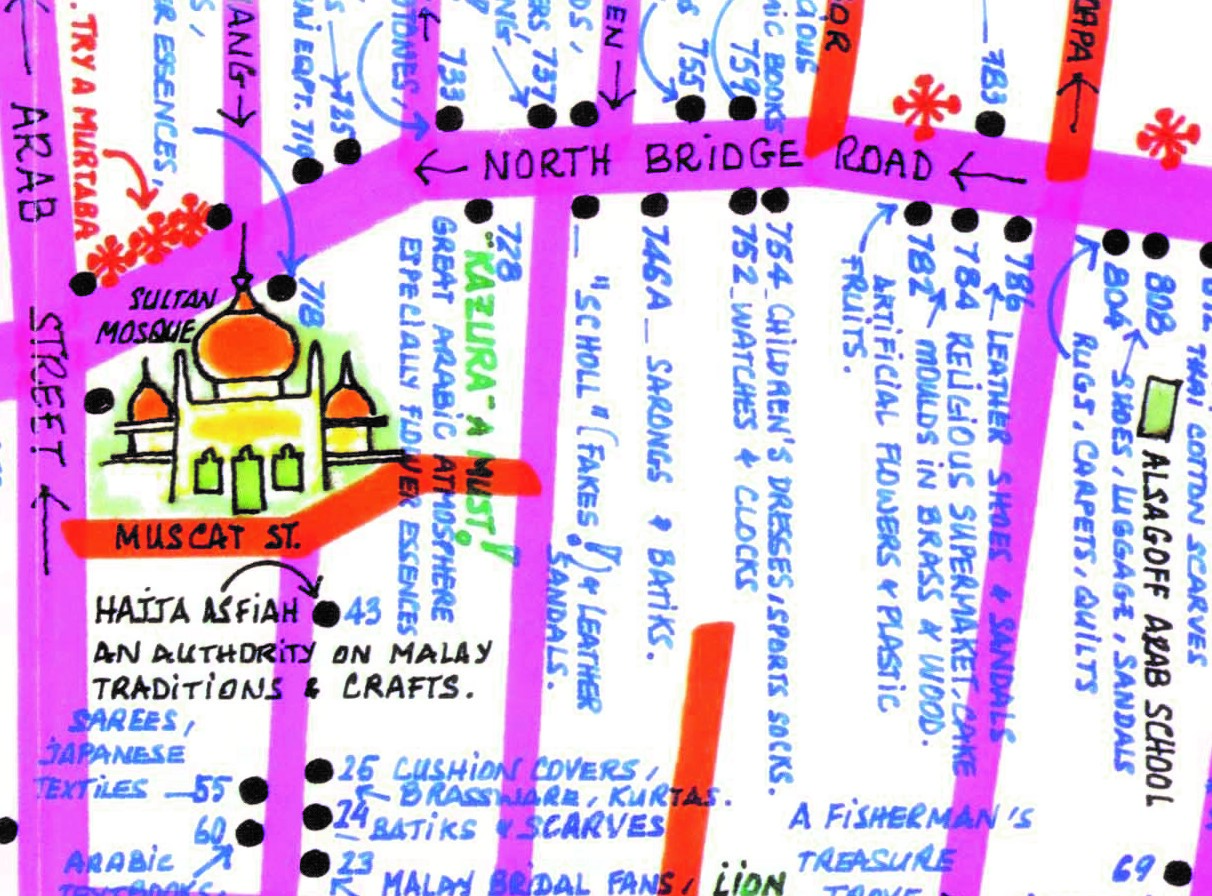 ARAB
STREET
TRY A MURTABA
ESSENCES,
ANG
719
725
733
737
EN
755
759
BOOKS
783
NORTH BRIDGE ROAD
SULTAN
MOSQUE
718
728
"KAZURA" A MUST!
GREAT ARABIC ATMOSPHERE
ESPECIALLY FLOWER ESSENCES
"SCHOLL" (FAKES!) & LEATHER
SANDALS.
746A_ SARONGS & BATIKS.
752_WATCHES & CLOCKS
754_CHILDREN'S DRESSES, SPORTS SOCKS.
ARTIFICIAL FLOWERS & PLASTIC
FRUITS.
782 MOULDS IN BRASS & WOOD.
784 RELIGIOUS SUPERMARKET, CAKE
786 LEATHER SHOES & SANDALS
RUGS, CARPETS, QUILTS
804 SHOES, LUGGAGE, SANDALS
808
ALSAGOFF ARAB SCHOOL
THAI COTTON SCARVES
MUSCAT ST.
HAJJA ASFIAH 43
AN AUTHORITY ON MALAY
TRADITIONS & CRAFTS.
SAREES,
JAPANESE
TEXTILES _55
60
ARABIC
TEXTBOOKS,
25 CUSHION COVERS,
BRASSWARE, KURTAS.
24 BATIKS & SCARVES
23
MALAY BRIDAL FANS, LION
A FISHERMAN'S
TREASURE
TROVE
69